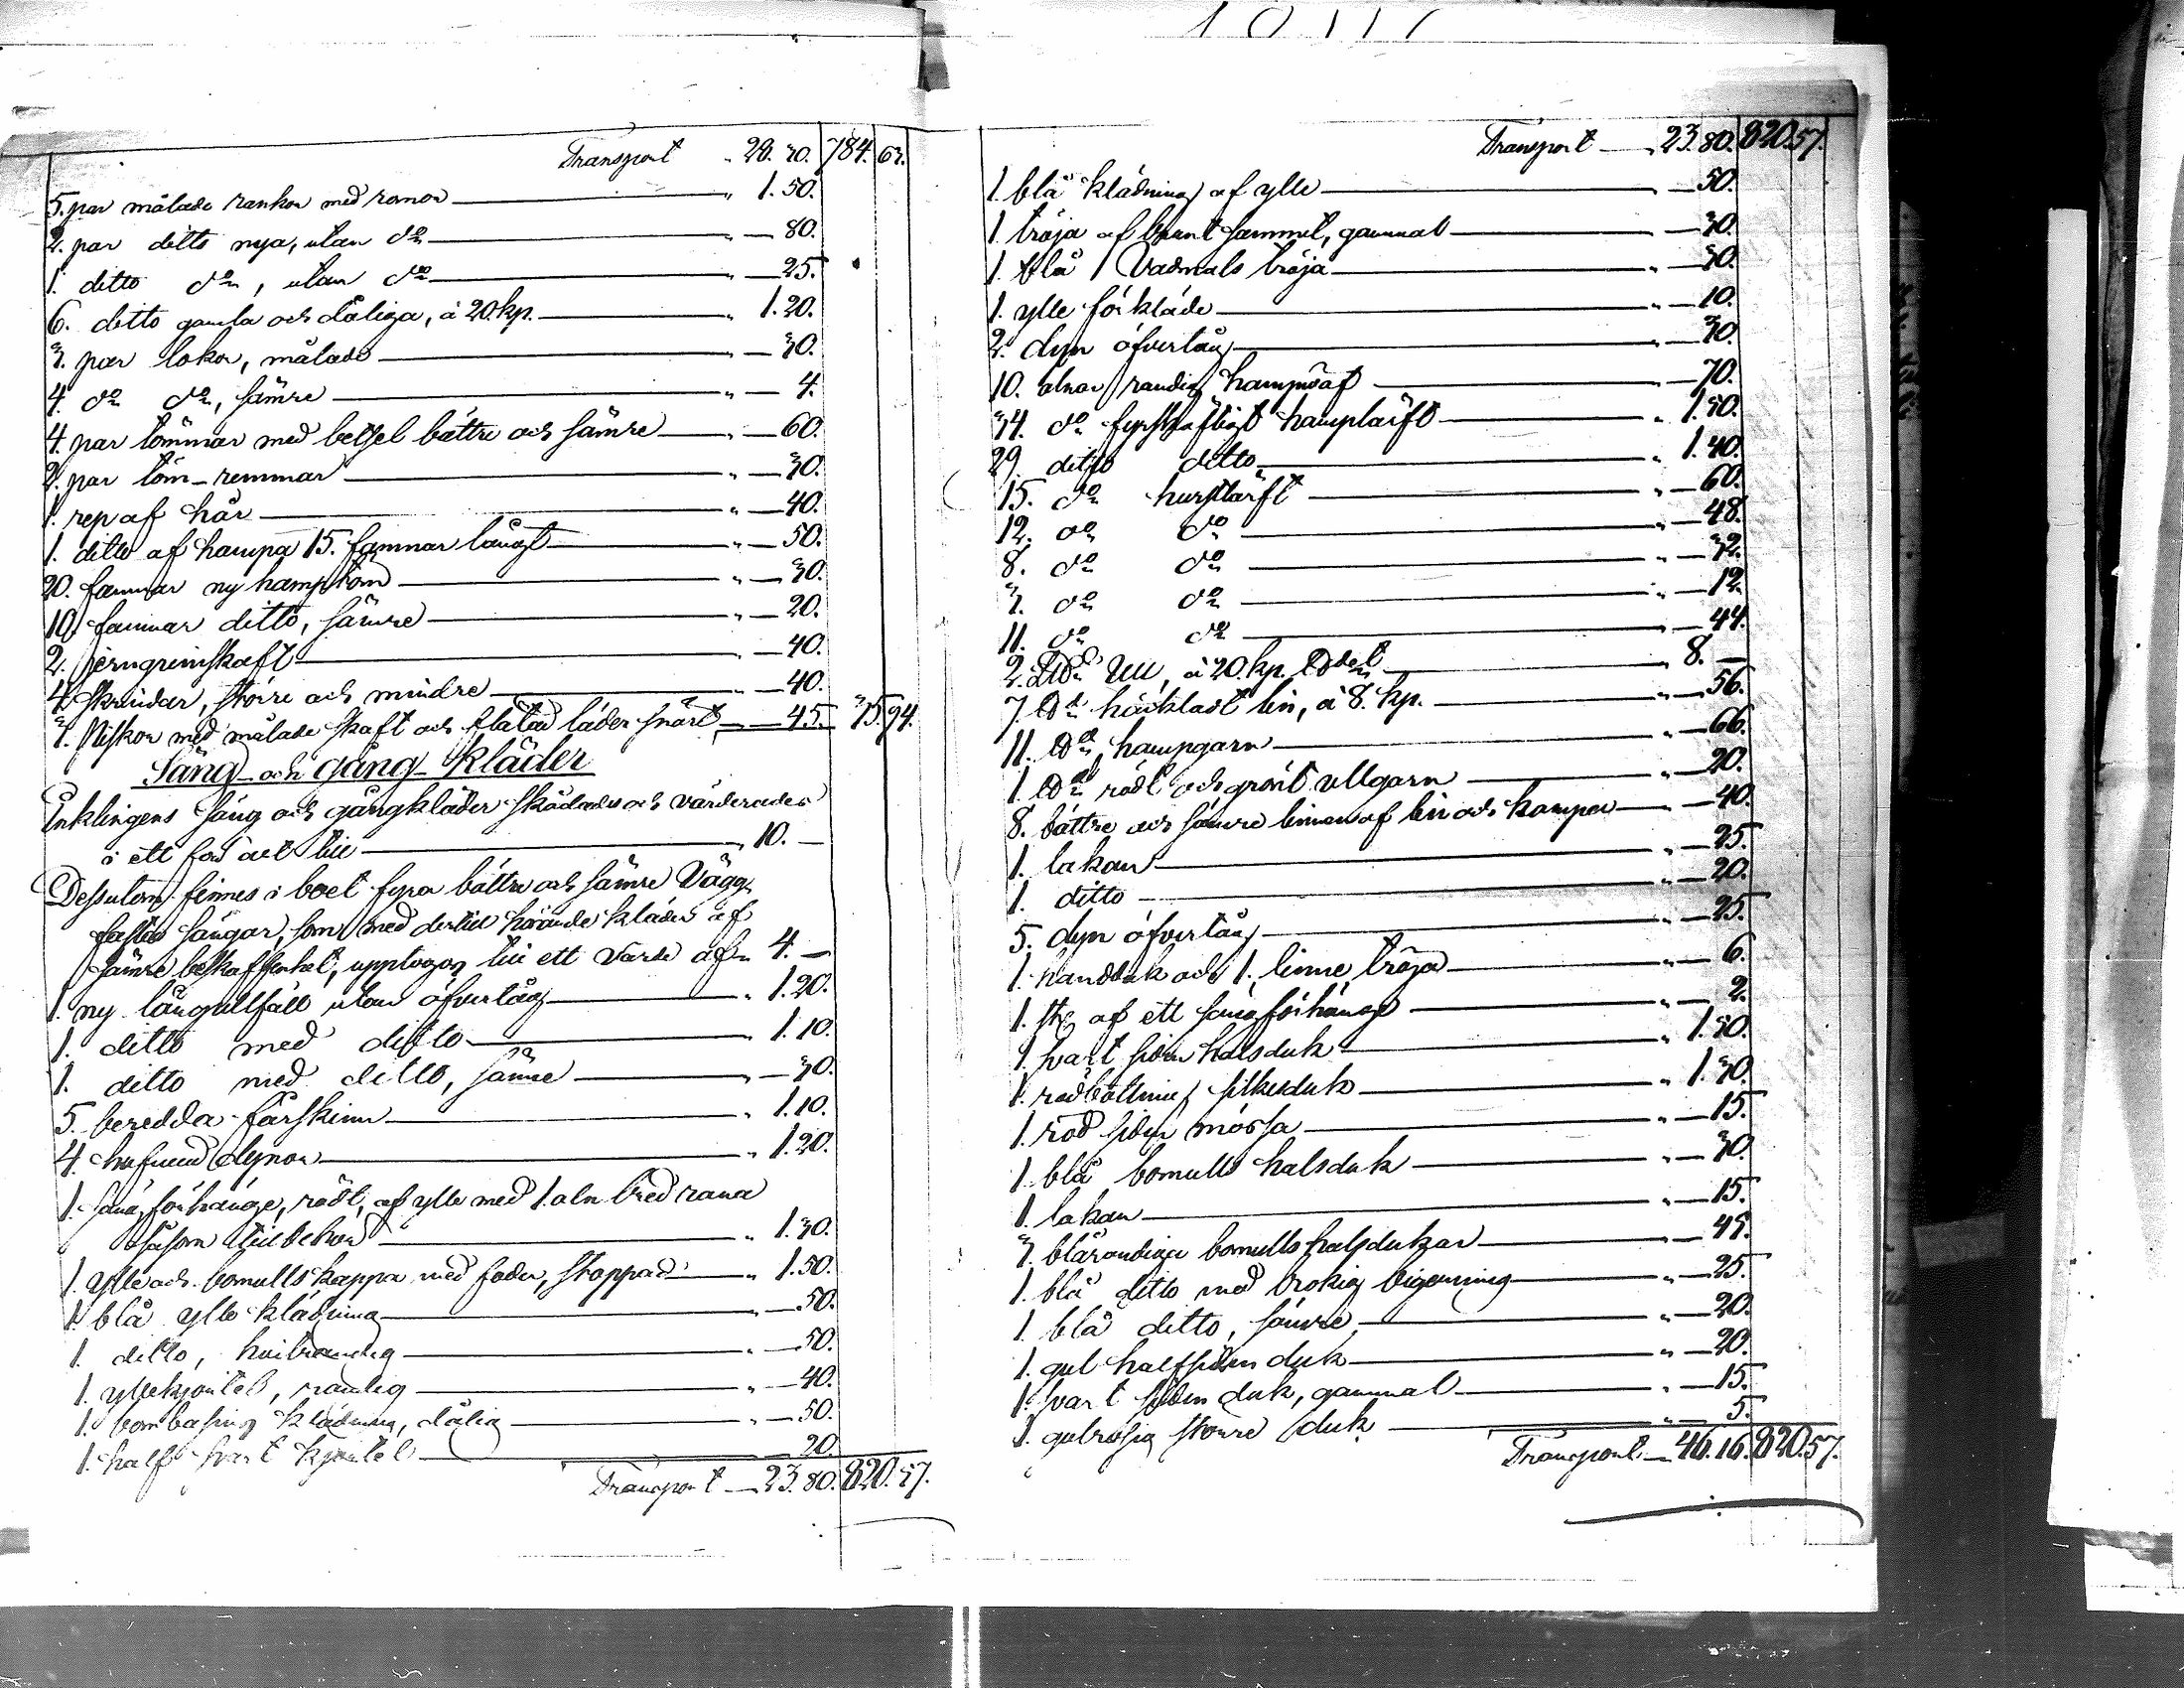 Transport „ 28. 30. 784. 63.
5. par målade rankor med remor „ 1. 50.
2. par ditto nya, utan do „ — 80.
1. ditto do, utan do „ — 25.
6. ditto gamla och dåliga, à 20 kp. „ 1. 20.
3. par lokor, målade „ — 30.
4. do do, sämre „ — 4.
4. par tömmar med betsel bättre och sämre „ — 60.
2. par töm-remmar „ — 30.
1. rep af hår „ — 40.
1. ditto af hampa 15. famnar långt „ — 50.
20. famnar ny hamptöm „ — 30.
10. famnar ditto, sämre „ — 20.
2. jerngrimskaft „ — 40.
4. skrindor, större och mindre „ — 40.
3. Piskor med målade skaft och flätad läder snärt „ — 45. 35. 94.
Säng- och gång-kläder
Enklingens säng och gångkläder skådades och värderades
i ett för allt till „ 10. —
Dessutom finnes i boet fyra bättre och sämre Vägg-
fasta sängar, som med dertill hörande kläder af
sämre beskaffenhet, upptogos till ett värde af „ 4. —
1. ny långullfäll utan öfvertåg „ 1. 20.
1. ditto med ditto „ 1. 10.
1. ditto med ditto, sämre „ — 30.
5. beredda fårskinn „ 1. 10.
4. hufvud dynor „ 1. 20.
1. sängförhänge, rödt, af ylle med 1. aln bred rana
såsom tillbehör „ 1. 30.
1. ylle och bomulls kappa med foder, stoppad „ 1. 50.
1. blå ylle klädning „ — 50.
1. ditto, hvitrandig „ — 50.
1. yllekjortel, randig „ — 40.
1. bombasing klädning, dålig „ — 50.
1. half svart kjortel — 20.
Transport — 23. 80. 820. 57.
Transport — „ 23. 80. 820. 57.
1. blå klädning af ylle „ — 50.
1. tröja af brunt sammet, gammal „ — 30.
1. blå Vadmals tröja „ — 30.
1. ylle förkläde „ — 10.
2. dyn öfvertåg „ — 30.
10. alnar randig hampväf „ — 70.
34. do fyrskäftigt hamplärft „ 1. 50.
29. ditto ditto „ 1. 40.
15. do hurstlärft „ — 60.
12. do do „ — 48.
8. do do „ — 32.
3. do do „ — 12.
11. do do „ — 44.
2. Ull, à 20. kp. 8. —
7. häckladt lin, à 8. kp. „ — 56.
11. hampgarn „ — 66.
1. rödt och grönt ullgarn „ — 20.
8. bättre och sämre linnen af lin och hampa „ — 40.
1. lakan „ — 25.
1. ditto „ — 20.
5. dyn öfvertåg „ — 25.
1. handduk och 1. linne tröja „ — 6.
1. st. af ett sängförhänge „ — 2.
1. svart siden halsduk „ 1. 50.
1. rödbottnig silkesduk „ 1. 30.
1. röd siden mössa „ — 15.
1. blå bomulls halsduk „ — 30.
1. lakan „ — 15.
3. blårandiga bomulls halsdukar „ — 45.
1. blå ditto med brokig bigarning „ — 25.
1. blå ditto, sämre „ — 20.
1. gul halfsiden duk „ — 20.
1. svart siden duk, gammal „ — 15.
1. gulrosig större duk „ — 5.
Transport — 46. 16. 820. 57.